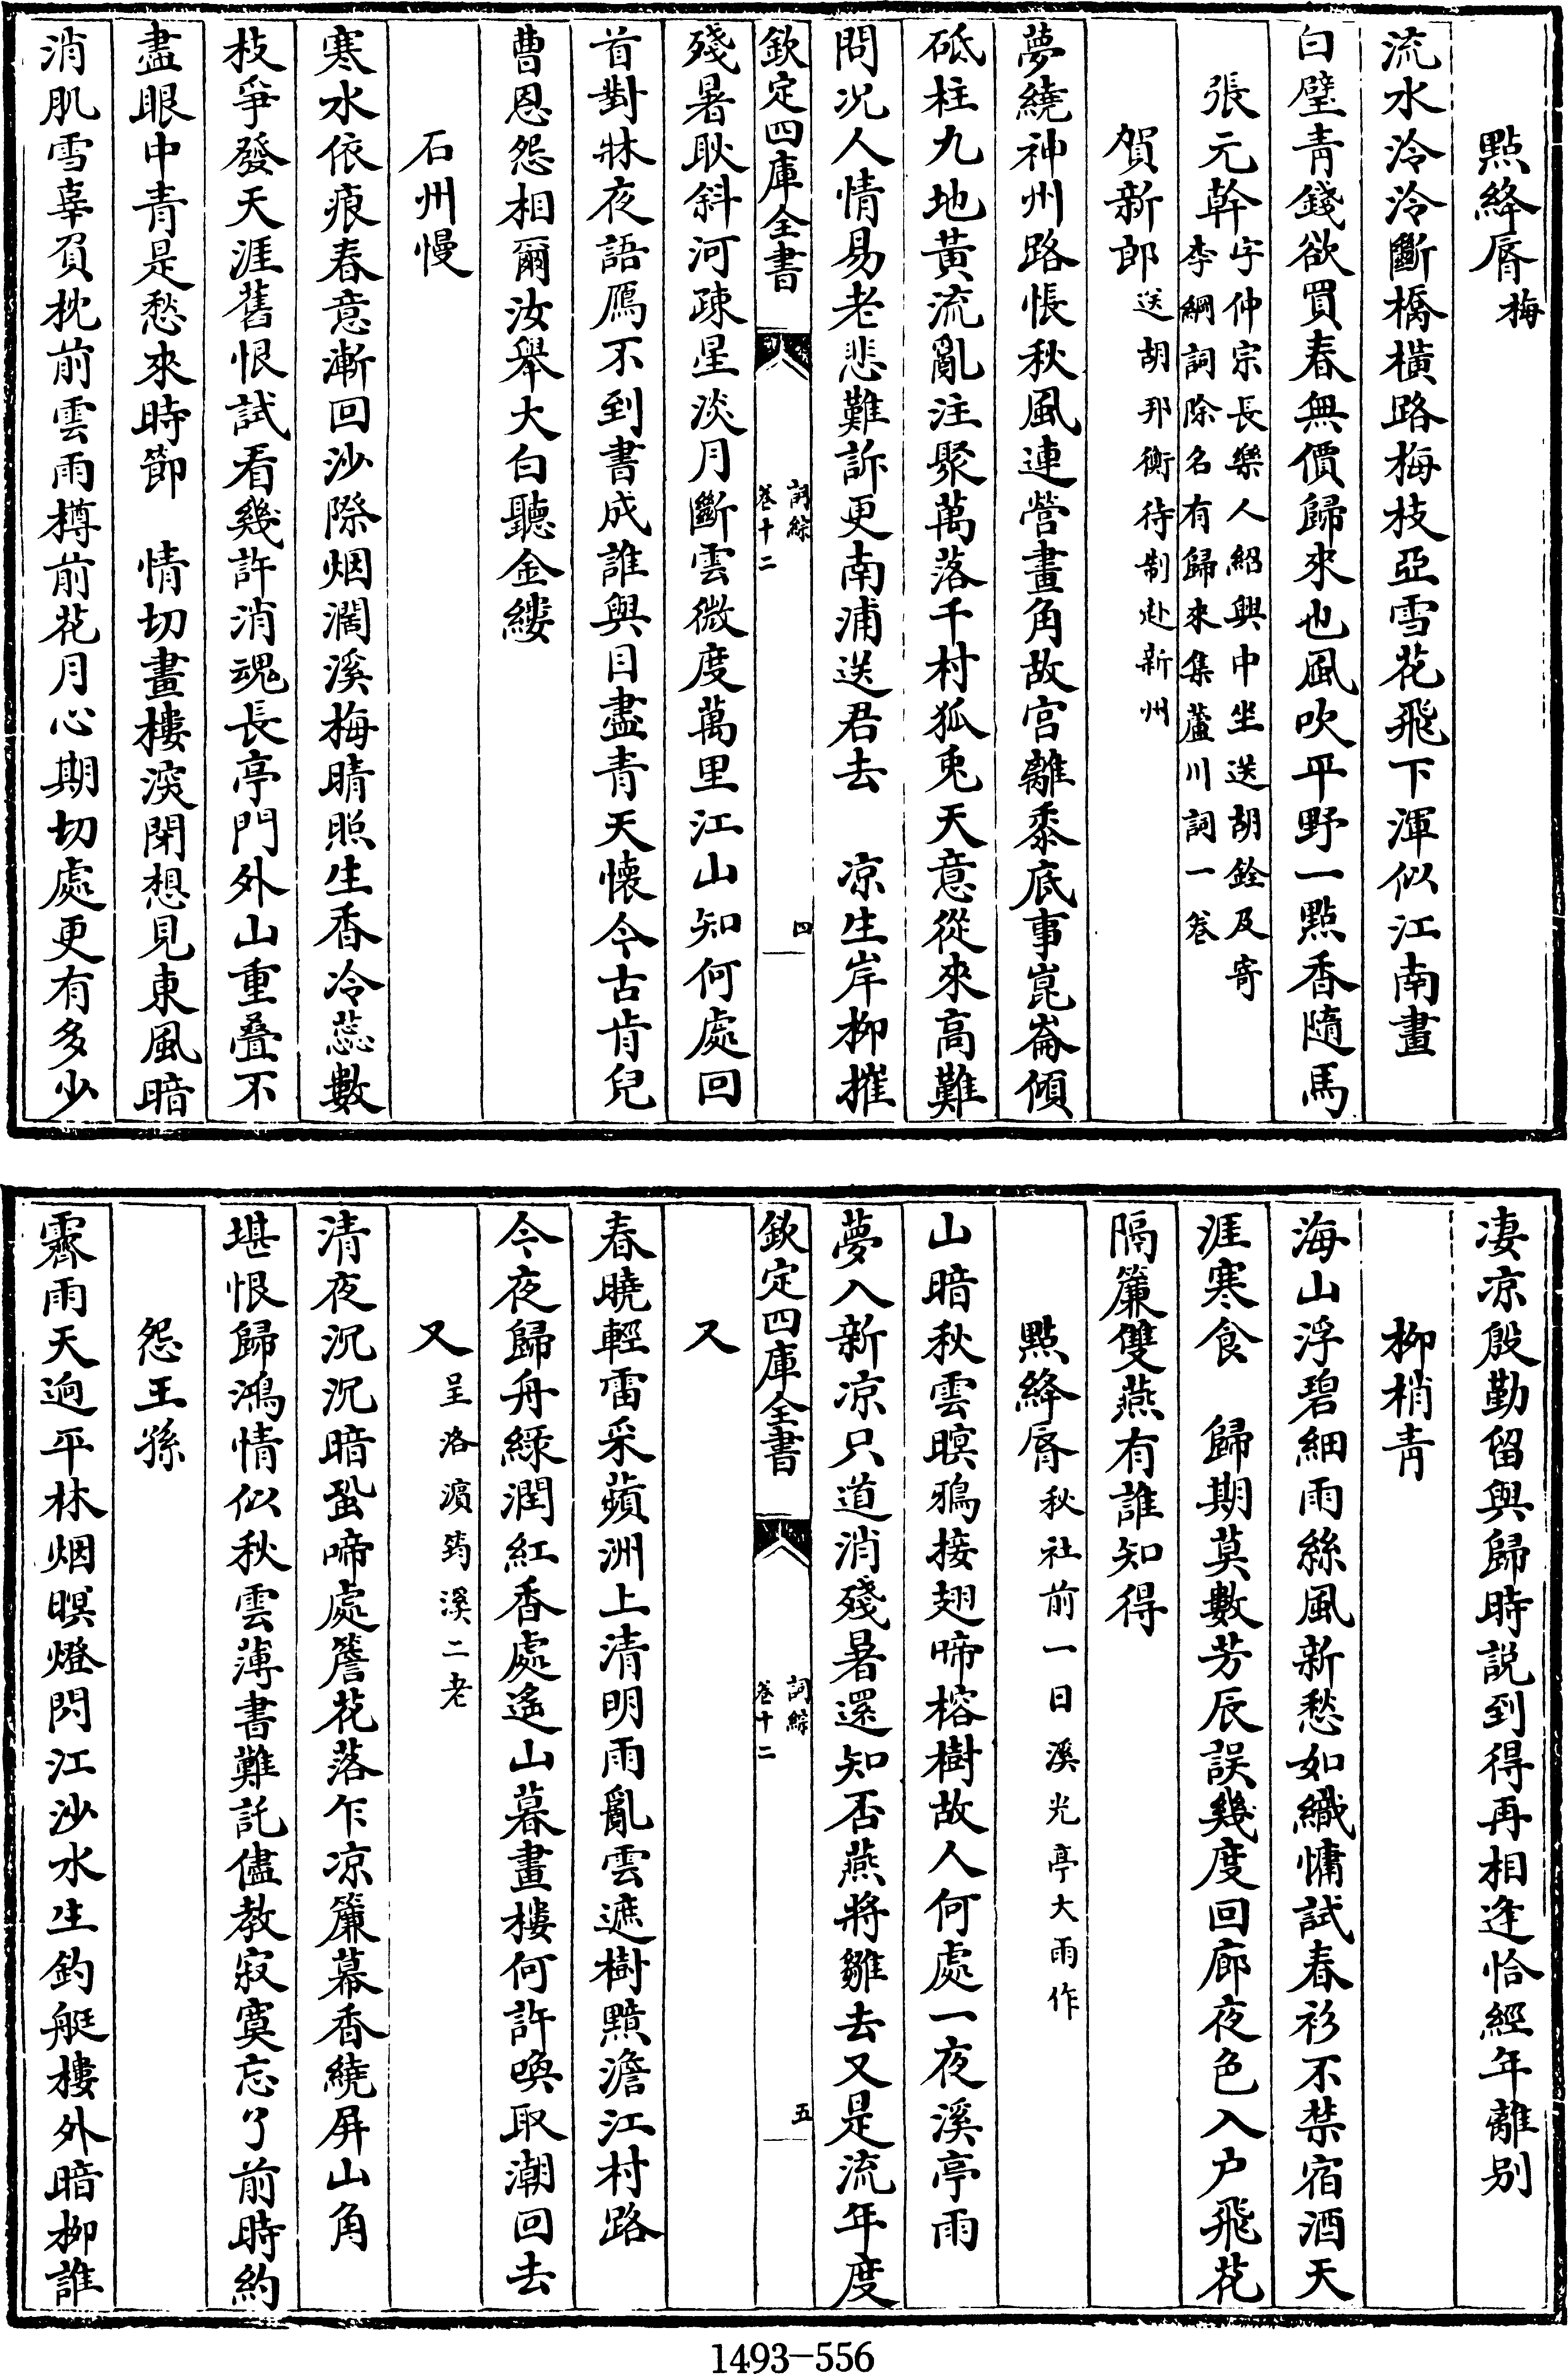 點絳脣梅
流水泠泠斷橋橫路梅枝亞雪花飛下渾似江南畫
白璧青錢欲買春無價歸來也風吹平野一點香隨馬
張元幹字仲宗長樂人紹興中坐送胡銓及寄李綱詞除名有歸來集蘆川詞一卷
賀新郎送胡邦衡待制赴新州
夢繞神州路悵秋風連營畫角故宮離黍底事崑崙傾
砥柱九地黃流亂注聚萬落千村狐兎天意從來高難
問况人情易老悲難訴更南浦送君去　凉生岸柳摧
欽定四庫全書　詞綜卷十二　四
殘暑耿斜河疎星淡月斷雲微度萬里江山知何處回
首對牀夜語鴈不到書成誰與目盡青天懷今古肯兒
曹恩怨相爾汝舉大白聽金縷
石州慢
寒水依痕春意漸回沙際烟濶溪梅晴照生香冷蕊數
枝爭發天涯舊恨試看幾許消魂長亭門外山重叠不
盡眼中青是愁來時節　情切畫樓深閉想見東風暗
消肌雪辜負枕前雲雨樽前花月心期切處更有多少
凄凉殷勤留與歸時説到得再相逢恰經年離别
柳梢青
海山浮碧細雨絲風新愁如織慵試春衫不禁宿酒天
涯寒食　歸期莫數芳辰誤幾度回廊夜色入户飛花
隔簾雙燕有誰知得
點絳脣秋社前一日溪光亭大雨作
山暗秋雲暝鴉接翅啼榕樹故人何處一夜溪亭雨
夢入新凉只道消殘暑還知否燕將雛去又是流年度
欽定四庫全書　詞綜卷十二　五
又
春曉輕雷采蘋洲上清明雨亂雲遮樹黯澹江村路
今夜歸舟緑潤紅香處遙山暮畫樓何許喚取潮回去
又呈洛濱筠溪二老
清夜沉沉暗蛩啼處簷花落乍凉簾幕香繞屏山角
堪恨歸鴻情似秋雲薄書難託儘教寂寞忘了前時約
怨王孫
霽雨天迥平林烟暝燈閃江沙水生釣艇樓外暗柳誰
1493-556